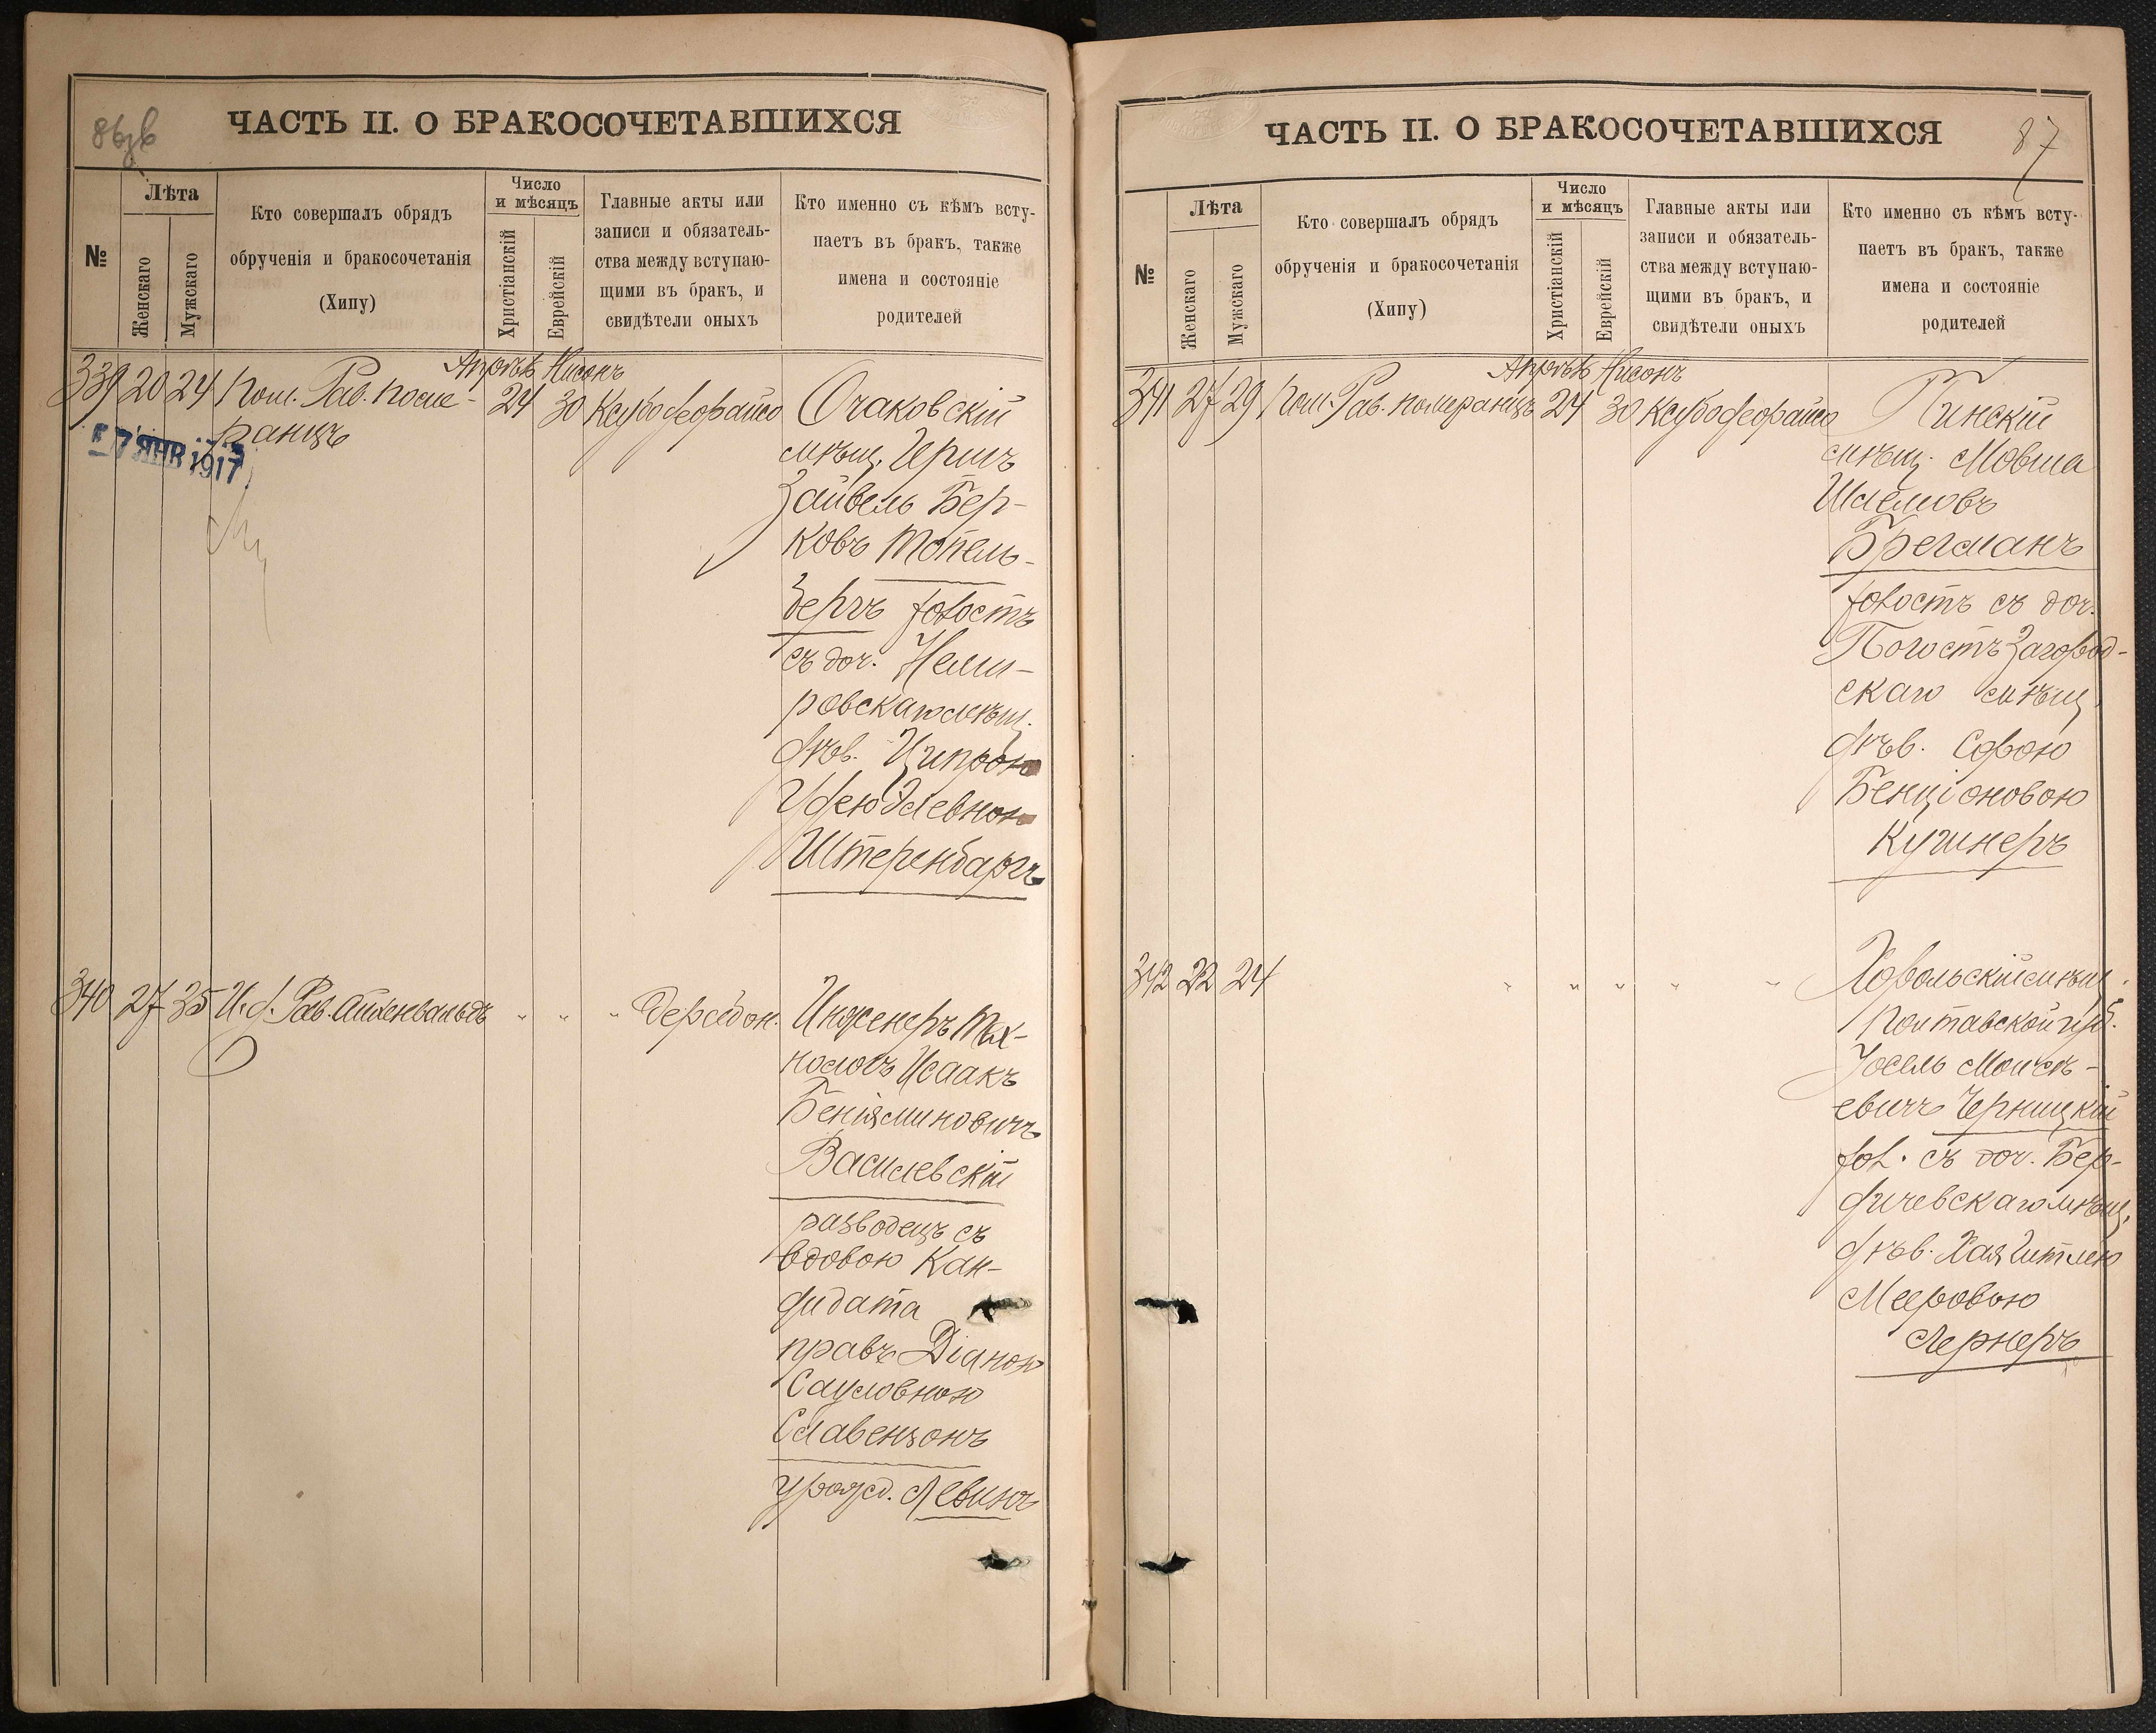 86зв
ЧАСТЬ II. О БРАКОСОЧЕТАВШИХСЯ
№
Лѣта
Женскаго
Мужскаго
Кто совершалъ обрядъ
обрученія и бракосочетанія
(Хипу)
Число
и мѣсяцъ
Христіанскій
Еврейскій
Главные акты или
записи и обязатель-
ства между вступаю-
щими въ бракъ, и
свидѣтели оныхъ
Кто именно съ кѣмъ всту-
паетъ въ бракъ, также
имена и состояніе
родителей
Апрѣль Нисонъ
339 20 24 Пом. Рав. Поме-
ранцъ
24 30 Ксубо деорайсо
17 ЯНВ 1917
Очаковскій
мѣщ. Герш
Зайвель Бер-
ковъ Топель-
бергъ холостъ
съ доч. Неми-
ровскаго мѣщ.
дѣв. Ципрою
Штеренбаргъ
340 27 35 И. д. Рав. Айхенвальдъ " " "
Инженеръ Тех-
нологъ Исаакъ
Беніяминовичъ
Василевскій
разводецъ съ
вдовою Кан-
дидата
правъ Діаною
Сауловною
Славенсонъ
урожд. Левинъ
ЧАСТЬ II. О БРАКОСОЧЕТАВШИХСЯ
87
№
Лѣта
Женскаго
Мужскаго
Кто совершалъ обрядъ
обрученія и бракосочетанія
(Хипу)
Число
и мѣсяцъ
Христіанскій
Еврейскій
Главные акты или
записи и обязатель-
ства между вступаю-
щими въ бракъ, и
свидѣтели оныхъ
Кто именно съ кѣмъ всту-
паетъ въ бракъ, также
имена и состояніе
родителей
Апрѣль Нисонъ
341 27 29 Пом. Рав. Померанцъ 24 30 Ксубо деорайсо
Пинскій
мѣщ. Мовша
Шлемовъ
Брегманъ
холостъ съ доч.
Погостъ Загород-
скаго мѣщ.
дѣв. Сорою
Бенціоновою
Кушнеръ
342 22 24 " " " " "
Хорольскій мѣщ.
Полтавской губ.
Іосель Моисѣ-
евичъ Черницкій
хол. съ доч. Бер-
дичевскаго мѣщ.
дѣв. Хая Гитлею
Мееровою
Лернеръ